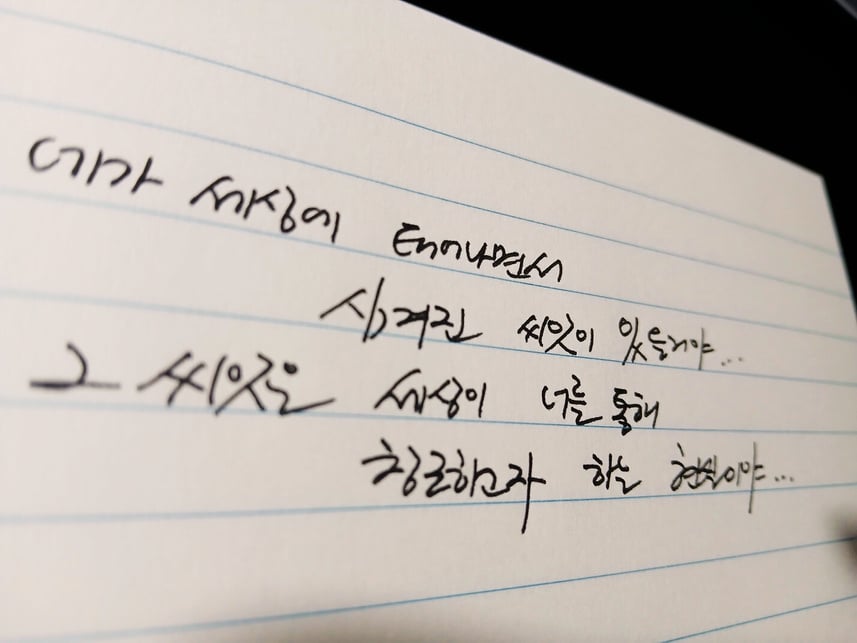 네가 세상에 태어나면서
심겨진 씨앗이 있을거야...
그 씨앗은 세상이 너를 통해
창조하고자 하는 현실이야...